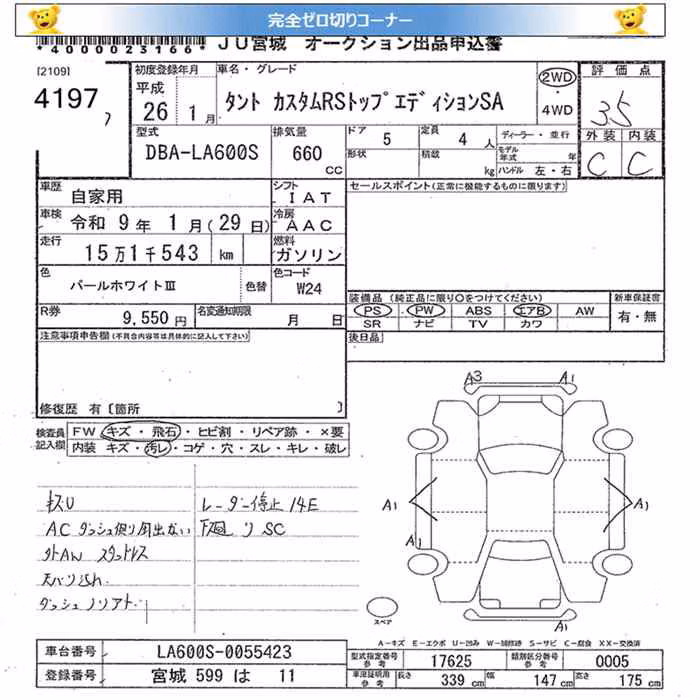 完全ゼロ切りコーナー
*4000023166* JU宮城 オークション出品申込書
[2109]
4197
初度登録年月 平成 26年 1月
車名・グレード
タント カスタムRSトップエディションSA
2WD ・ 4WD
評価点
3.5
外装 内装
C C
型式
DBA-LA600S
排気量
660 CC
ドア 5
定員 4 人
形状
積載 kg
ディーラー ・ 並行
モデル年式 年
ハンドル 左・右
車歴 自家用
シフト IAT
車検 令和 9年 1月(29日)
冷房 AAC
走行 15万1千543 km
燃料 ガソリン
色 パールホワイトⅢ
色替
色コード W24
R券 9,550円
名変通知期限 月 日
セールスポイント(正常に機能するものに限ります)
装備品(純正品に限り○をつけてください)
新車保証書
PS PW ABS エアB AW
有・無
SR ナビ TV カワ
後日品
注意事項申告欄(不具合内容等は具体的に記入して下さい)
修復歴 有〔箇所 〕
検査員記入欄
FW キズ・飛石・ヒビ割・リペア跡・×要
内装 キズ・汚レ・コゲ・穴・スレ・キレ・破レ
キズU
レーダー停止 14E
ACダッシュ側り風出ない
下廻りSC
外AW スタットレス
天バリ汚れ
ダッシュノリアト
A3 A1
A1 A1
A1
A1
スペア
A-キズ E-エクボ U-凹み W-補修跡 S-サビ C-腐食 XX-交換済
車台番号 LA600S-0055423
登録番号 宮城 599 は 11
型式指定番号 参考 17625
類別区分番号 参考 0005
車庫証明用 参考 長さ 339 cm 幅 147 cm 高さ 175 cm